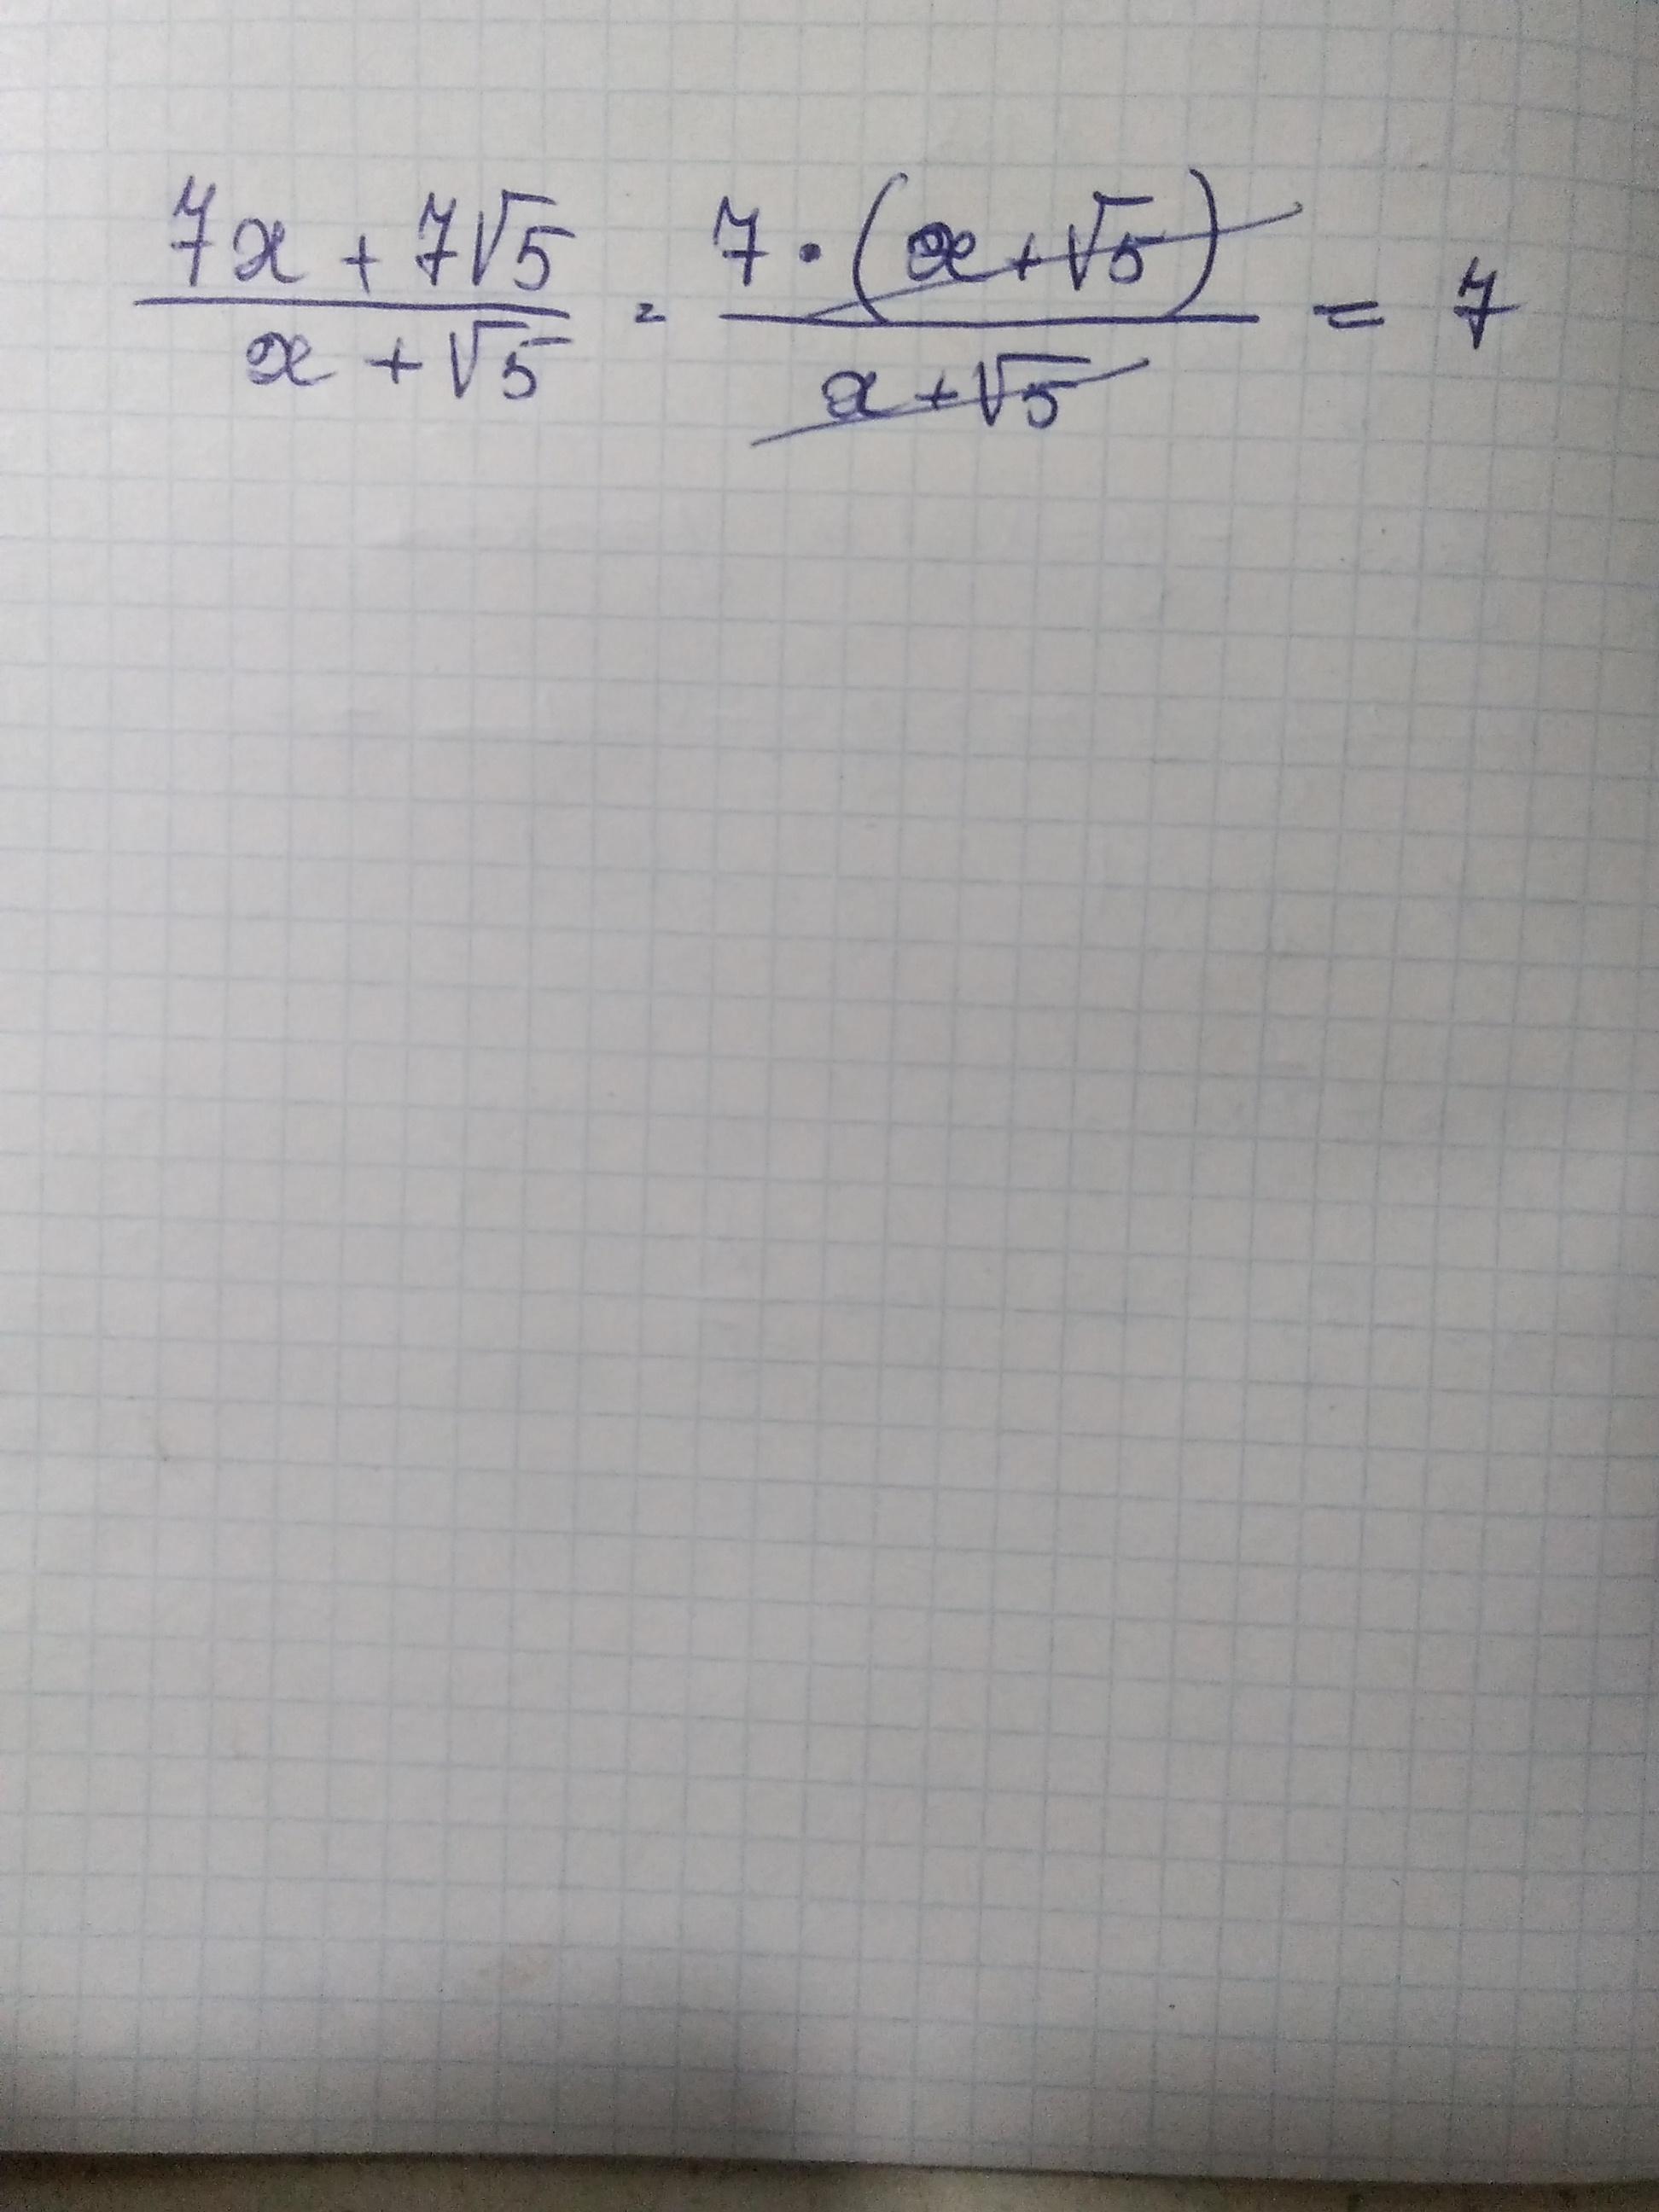 (7x + 7√5)/(x + √5) = (7 · (x + √5))/(x + √5) = 7